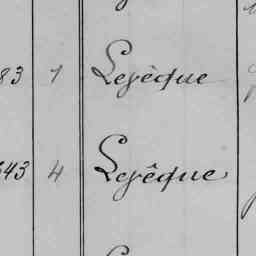 83 1 Levêque
643 4 Levêque